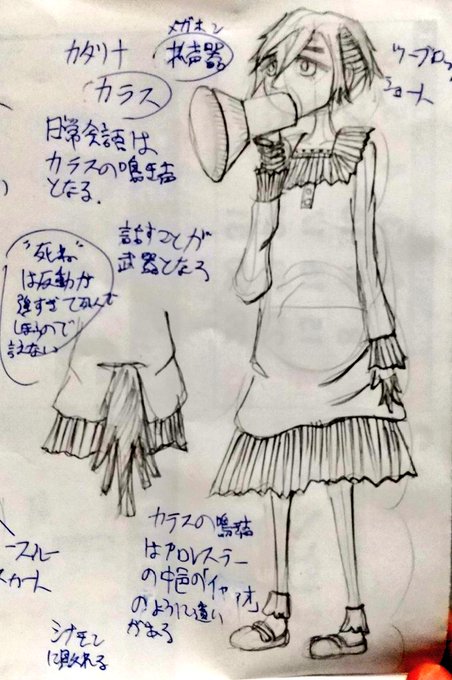 メガホン
拡声器
カタリナ
カラス
日常会話は
カラスの鳴き声
となる.
話すことが
武器となる
"死ね"
は反動が
強すぎて死んで
しまうので
言えない
カラスの鳴き声
はプロレスラー
の中邑の「イヤァオ」
のように違い
がある
ショート
スカート
シナモン
に敗れる